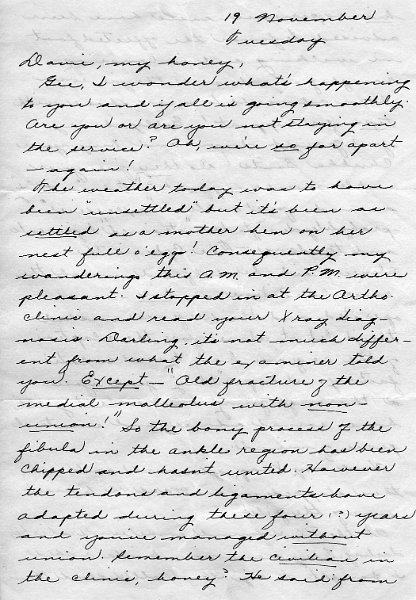 19 November
Tuesday
Davie, my honey,
Gee, I wonder what's happening
to you and if all is going smoothly.
Are you or are you not staying in
the service? Oh, we're so far apart
— again!
The weather today was to have
been "unsettled" but it's been as
settled as a mother hen on her
nest full o'eggs! Consequently my
wanderings this A.M. and P.M. were
pleasant. I stopped in at the Ortho.
Clinic and read your Xray diag-
nosis. Darling, it's not much differ-
ent from what the examiner told
you. Except — "Old fracture of the
medial malleolus with non-
union!" So the bony process of the
fibula in the ankle region has been
chipped and hasn't united. However
the tendons and ligaments have
adapted during these four (?) years
and you've managed without
union. Remember the civilian in
the clinic, honey? He said from